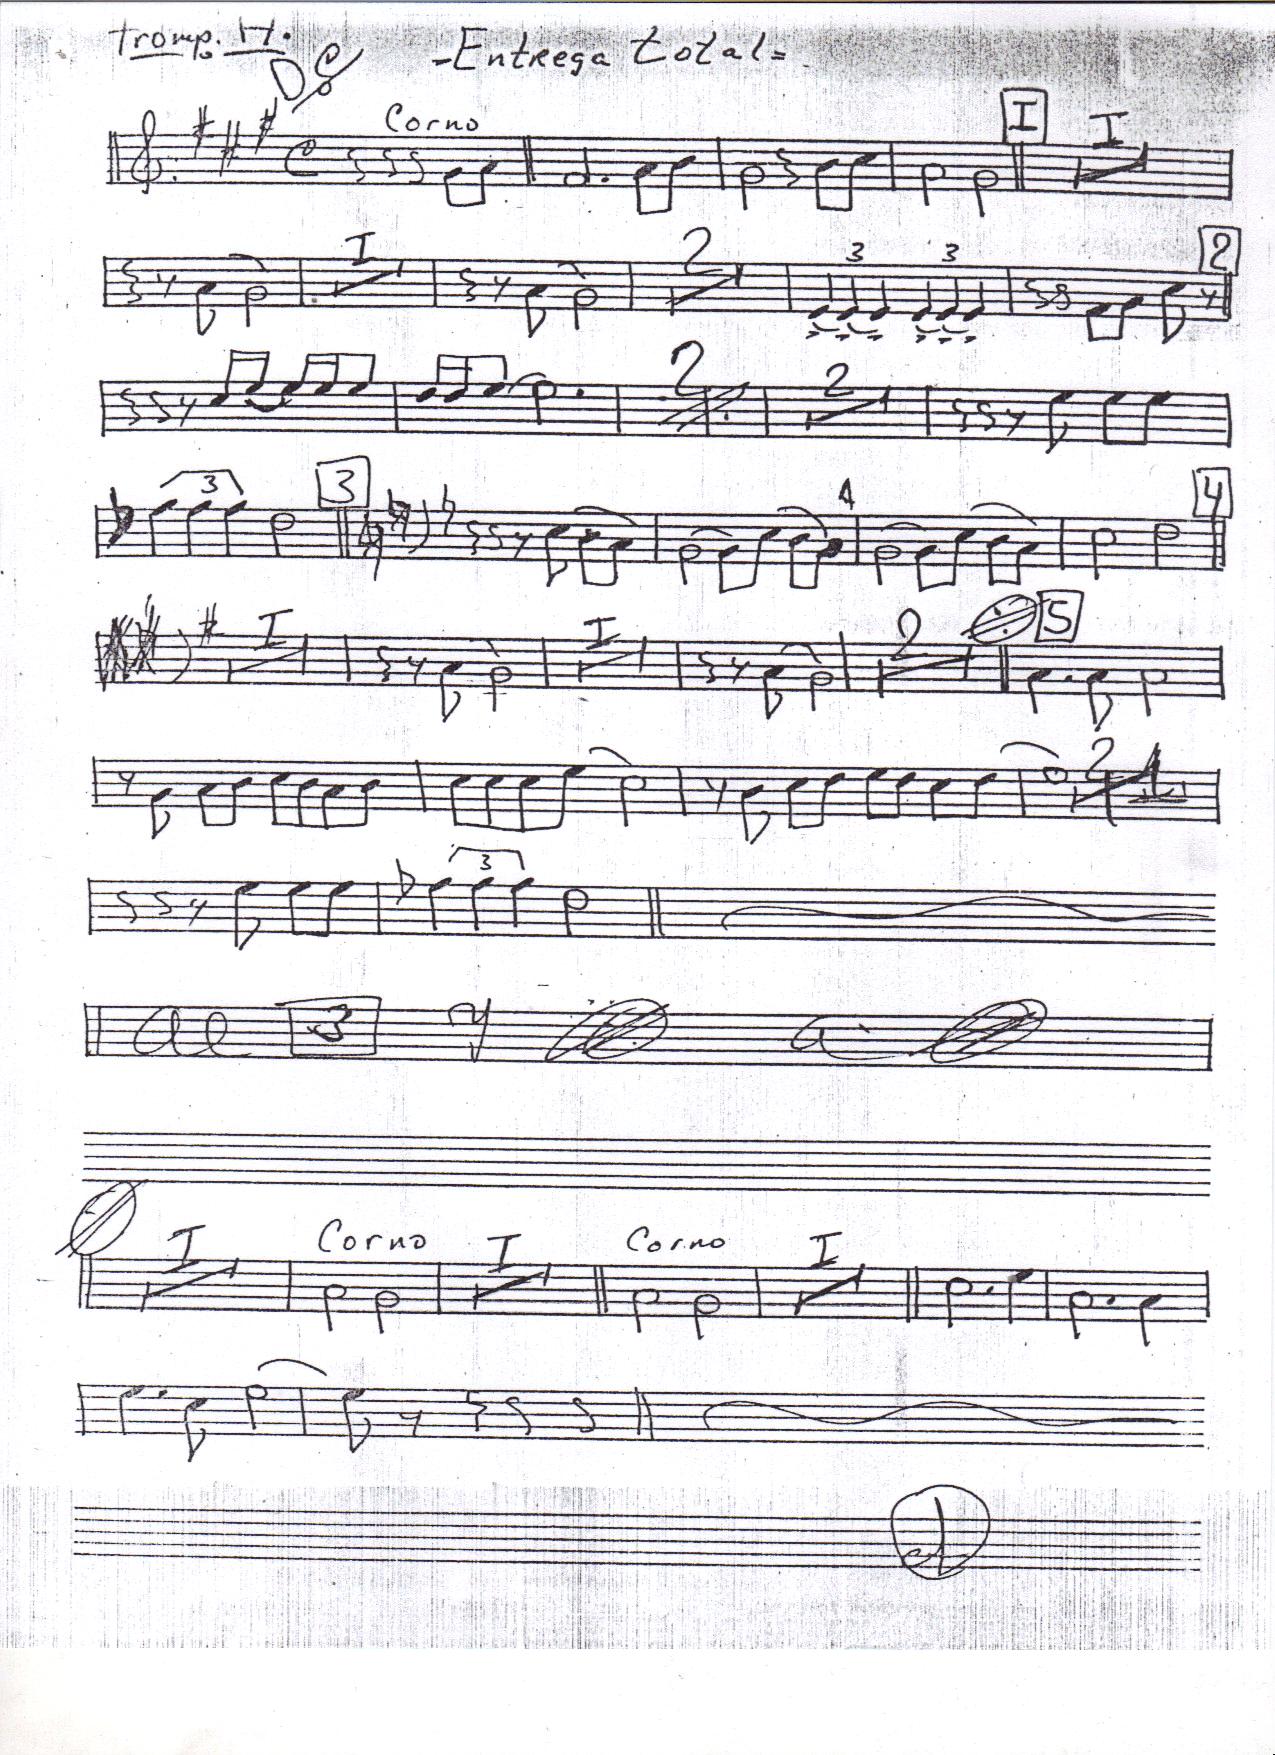 Tromp. II.
-Entrega total=
Corno
I I
I 2 3 3 2
2 2
3 3 4
I I 2 5
2
3
al 3 y a
I Corno I Corno I